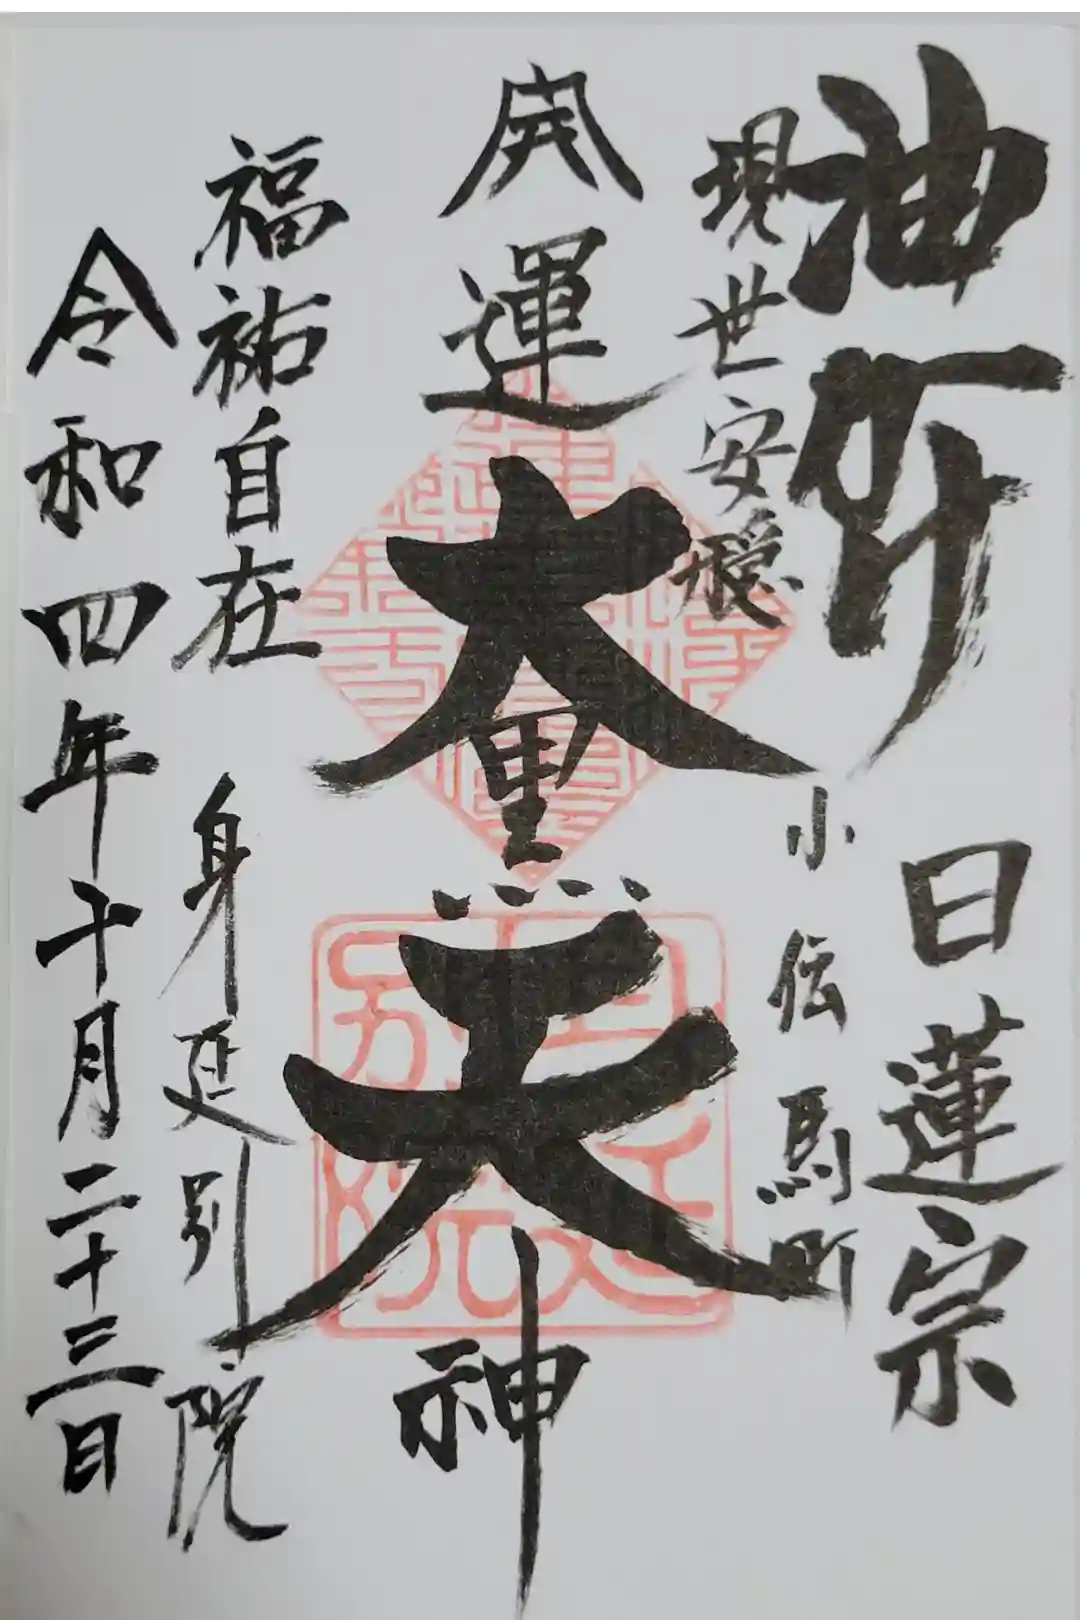 油断行
日蓮宗
現世安穏
小伝馬町
開運大黒天神
福祐自在
身延別院
令和四年十月二十三日